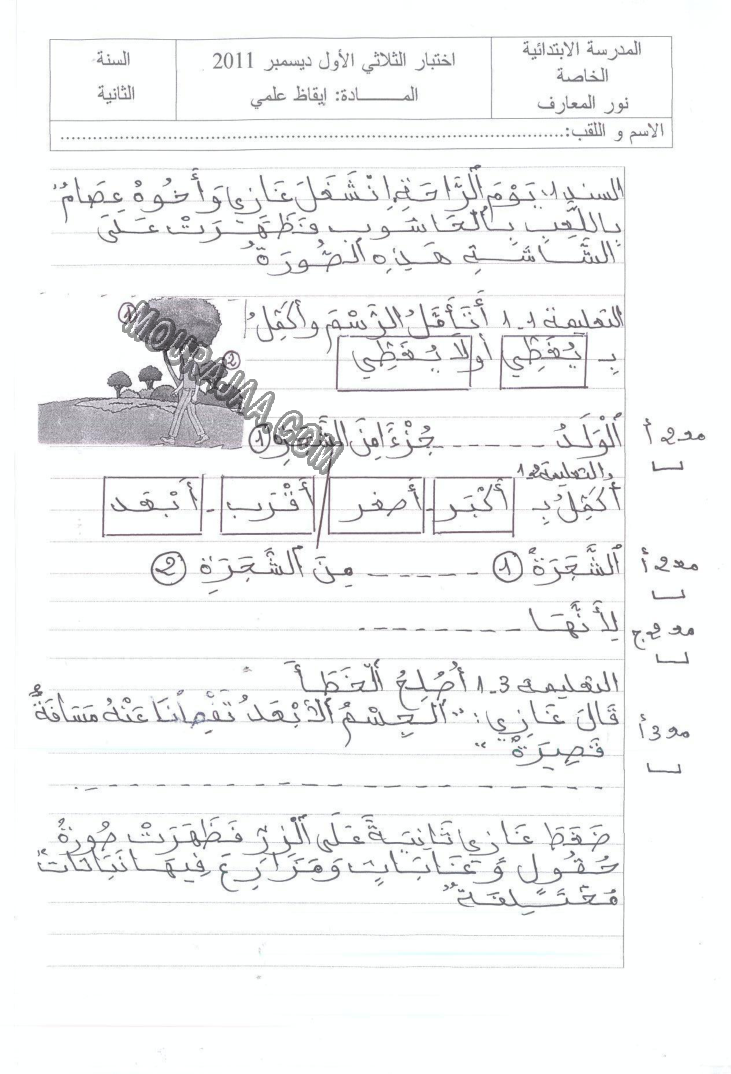 المدرسة الابتدائية
الخاصة
نور المعارف
اختبار الثلاثي الأول ديسمبر 2011
المــــــادة: إيقاظ علمي
السنة
الثانية
الاسم و اللقب:......................................................................................
السند 1: يَوْمَ ٱلرَّاحَةِ اِنْشَغَلَ غَازِي وَأَخُوهُ عِصَامُ
بِاللَّعِبِ بِالْحَاسُوبِ فَظَهَرَتْ عَلَى
الشَّاشَةِ هَذِهِ ٱلصُّورَةُ
التعليمة 1-1 أَتَأَمَّلُ الرَّسْمَ وأُكَمِّلُ
بِـ يُغَطِّي أو لَا يُغَطِّي
1
2
MOURAJAA.COM
ٱلْوَلَدُ ------ جُزْءًا مِنَ الشَّجَرَةِ 1
مع 2 أ
والتعليمة 2-1
أُكَمِّلُ بِـ أَكْبَر - أَصْغَر / أَقْرَب - أَبْعَد
ٱلشَّجَرَةُ 1 ----- مِنَ ٱلشَّجَرَةِ 2
مع 2 أ
لِأَنَّهَا ---------
مع 2 ج
التعليمة 3-1 أُصْلِحُ ٱلْخَطَأَ
قَالَ غَازِي: "ٱلْجِسْمُ ٱلْأَبْعَدُ تَفْصِلُنَا عَنْهُ مَسَافَةٌ
قَصِيرَةٌ"
مع 3 أ
ضَغَطَ غَازِي ثَانِيَةً عَلَى ٱلْزِرِّ فَظَهَرَتْ صُورَةُ
حُقُولٍ وَغَابَاتٍ وَمَزَارِعَ فِيهَا نَبَاتَاتٌ
مُخْتَلِفَةٌ"